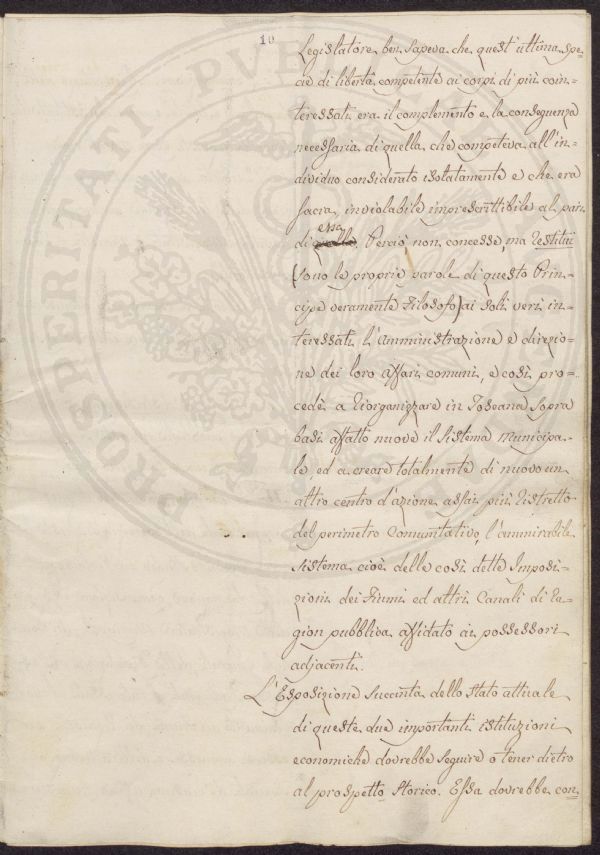 10
Legislatore ben sapeva che quest'ultima spe=
cie di libertà competente ai corpi di più coin=
teressati era il complemento e la conseguenza
necessaria di quella che competeva all'in=
dividuo considerato isolatamente e che era
sacra inviolabile imprescrittibile al pari
essa
di quella. Perciò non concesse, ma restituì
(sono le proprie parole di questo Prin=
cipe veramente Filosofo) ai soli veri in=
teressati l'amministrazione e direzio=
ne dei loro affari comuni, e così pro=
cedè a riorganizzare in Toscana sopra
basi affatto nuove il sistema municipa=
le, ed a creare totalmente di nuovo un
altro centro d'azione assai più ristretto
del perimetro Comunitativo, l'ammirabile
sistema cioè delle così dette Imposi=
zioni dei Fiumi ed altri Canali di ra=
gion pubblica affidato ai possessori
adjacenti.
L'Esposizione succinta dello stato attuale
di queste due importanti istituzioni
economiche dovrebbe seguire o tener dietro
al prospetto storico. Essa dovrebbe con=
PROSPERITATI PVBLICAE